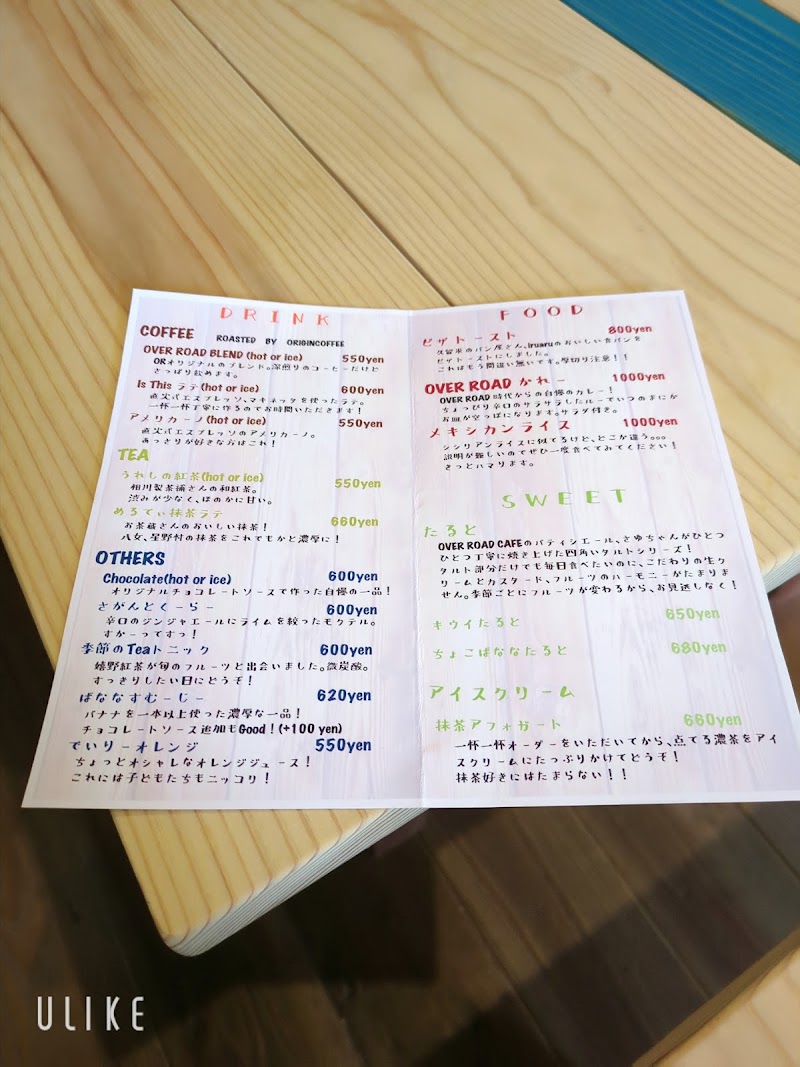 DRINK
COFFEE ROASTED BY ORIGINCOFFEE
OVER ROAD BLEND (hot or ice) 550yen
ORオリジナルのブレンド。深煎りのコーヒーだけど
さっぱり飲めます。
Is This ラテ(hot or ice) 600yen
直火式エスプレッソ、マキネッタを使ったラテ。
一杯一杯丁寧に作るのでお時間いただきます！
アメリカーノ(hot or ice) 550yen
直火式エスプレッソのアメリカーノ。
あっさりが好きな方はこれ！
TEA
うれしの紅茶(hot or ice) 550yen
相川製茶舗さんの和紅茶。
渋みが少なく、ほのかに甘い。
めるてぃ抹茶ラテ 660yen
お茶蔵さんのおいしい抹茶！
八女、星野村の抹茶をこれでもかと濃厚に！
OTHERS
Chocolate(hot or ice) 600yen
オリジナルチョコレートソースで作った自慢の一品！
さがんとくーらー 600yen
辛口のジンジャエールにライムを絞ったモクテル。
すかーってすっ！
季節のTeaトニック 600yen
嬉野紅茶が旬のフルーツと出会いました。微炭酸。
すっきりしたい日にどうぞ！
ばななすむーじー 620yen
バナナを一本以上使った濃厚な一品！
チョコレートソース追加もGood！(+100 yen)
でいりーオレンジ 550yen
ちょっとオシャレなオレンジジュース！
これには子どもたちもニッコリ！
FOOD
ピザトースト 800yen
久留米のパン屋さん、iruaruのおいしい食パンを
ピザトーストにしました。
これはもう間違い無いです。厚切り注意！！
OVER ROAD かれー 1000yen
OVER ROAD 時代からの自慢のカレー！
ちょっぴり辛口のサラサラしたルーでいつのまにか
お皿が空っぽになります。サラダ付き。
メキシカンライス 1000yen
シシリアンライスに似てるけど、どこか違う。。。
説明が難しいのでぜひ一度食べてみてください！
きっとハマります。
SWEET
たると
OVER ROAD CAFEのパティシエール、さゆちゃんがひとつ
ひとつ丁寧に焼き上げた四角いタルトシリーズ！
タルト部分だけでも毎日食べたいのに、こだわりの生ク
リームとカスタード、フルーツのハーモニーがたまりま
せん。季節ごとにフルーツが変わるから、お見逃しなく！
キウイたると 650yen
ちょこばななたると 680yen
アイスクリーム
抹茶アフォガート 660yen
一杯一杯オーダーをいただいてから、点てる濃茶をアイ
スクリームにたっぷりかけてどうぞ！
抹茶好きにはたまらない！！
ULIKE